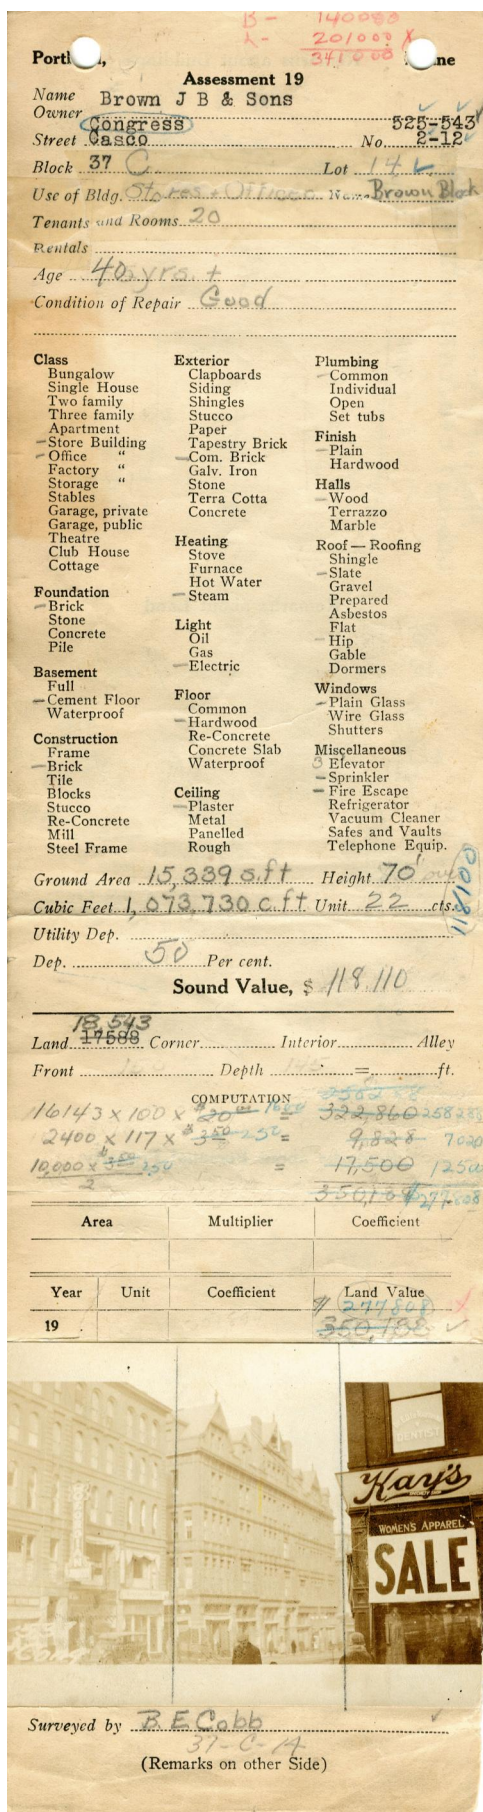 B - 140080
L - 201000 X
341000
Portl d, ne
Assessment 19
Name Brown J B & Sons
Owner
Congress 525-543
Street Casco No. 2-12
Block 37 C Lot 14
Use of Bldg. Stores + Offices Name Brown Block
Tenants and Rooms 20
Rentals
Age 40 yrs. +
Condition of Repair Good
Class
Bungalow
Single House
Two family
Three family
Apartment
Store Building
Office "
Factory "
Storage "
Stables
Garage, private
Garage, public
Theatre
Club House
Cottage
Foundation
Brick
Stone
Concrete
Pile
Basement
Full
Cement Floor
Waterproof
Construction
Frame
Brick
Tile
Blocks
Stucco
Re-Concrete
Mill
Steel Frame
Exterior
Clapboards
Siding
Shingles
Stucco
Paper
Tapestry Brick
Com. Brick
Galv. Iron
Stone
Terra Cotta
Concrete
Heating
Stove
Furnace
Hot Water
Steam
Light
Oil
Gas
Electric
Floor
Common
Hardwood
Re-Concrete
Concrete Slab
Waterproof
Ceiling
Plaster
Metal
Panelled
Rough
Plumbing
Common
Individual
Open
Set tubs
Finish
Plain
Hardwood
Halls
Wood
Terrazzo
Marble
Roof — Roofing
Shingle
Slate
Gravel
Prepared
Asbestos
Flat
Hip
Gable
Dormers
Windows
Plain Glass
Wire Glass
Shutters
Miscellaneous
3 Elevator
Sprinkler
Fire Escape
Refrigerator
Vacuum Cleaner
Safes and Vaults
Telephone Equip.
Ground Area 15,339 s.ft Height 70'
Cubic Feet 1,073,730 c.ft Unit 22 cts.
118100
Utility Dep.
Dep. 50 Per cent.
Sound Value, $ 118,110
18,543
Land 17588 Corner Interior Alley
Front Depth = ft.
COMPUTATION 258288
16143 x 100 x $20.00 1600 = 322,860 258288
2400 x 117 x $3.50 2.50 = 9,828 7020
10,000 x $3.50 2.50 = 17,500 12500
2
350,188 $277,808
Area Multiplier Coefficient
Year Unit Coefficient Land Value
$ 277808 X
19 350,188
DENTIST
Kay's
WOMEN'S APPAREL
SALE
Surveyed by B. E. Cobb
37-C-14
(Remarks on other Side)